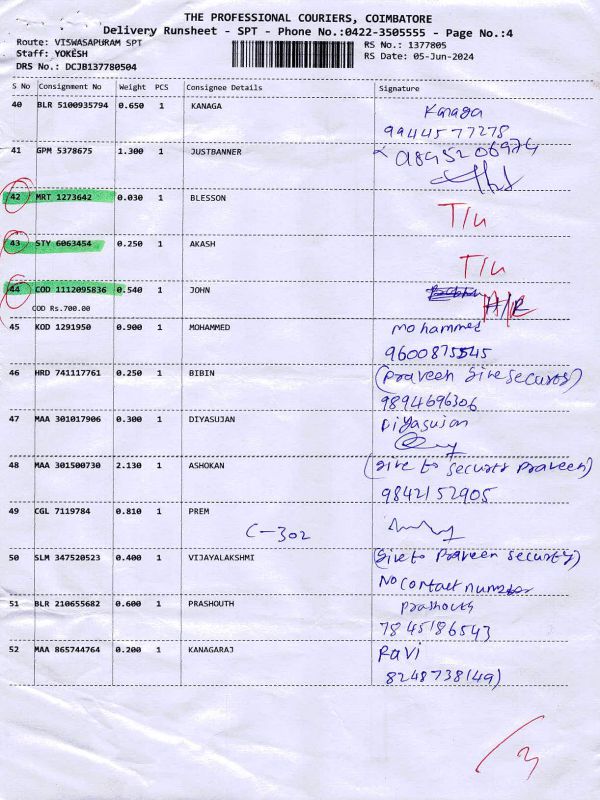 THE PROFESSIONAL COURIERS, COIMBATORE
Delivery Runsheet - SPT - Phone No.:0422-3505555 - Page No.:4
Route: VISWASAPURAM SPT
RS No.: 1377805
Staff: YOKESH
RS Date: 05-Jun-2024
DRS No.: DCJB137780504
S No Consignment No Weight PCS Consignee Details Signature
40 BLR 5100935794 0.650 1 KANAGA Kanaga
9944577278
41 GPM 5378675 1.300 1 JUSTBANNER
42 MRT 1273642 0.030 1 BLESSON T/u
43 STY 6063454 0.250 1 AKASH T/u
44 COD 1112095836 0.540 1 JOHN H/R
COD Rs.700.00
45 KOD 1291950 0.900 1 MOHAMMED mohammed
9600875545
46 HRD 741117761 0.250 1 BIBIN (Praveen Sire Securoty)
9894696306
47 MAA 301017906 0.300 1 DIYASUJAN Diyasujan
48 MAA 301500730 2.130 1 ASHOKAN (sire to securoty Praveen)
9842152905
49 CGL 7119784 0.810 1 PREM
C-302
50 SLM 347520523 0.400 1 VIJAYALAKSHMI (Sire to Praveen security)
No contact number
51 BLR 210655682 0.600 1 PRASHOUTH Prashouth
7845186543
52 MAA 865744764 0.200 1 KANAGARAJ Ravi
8248738149)
3